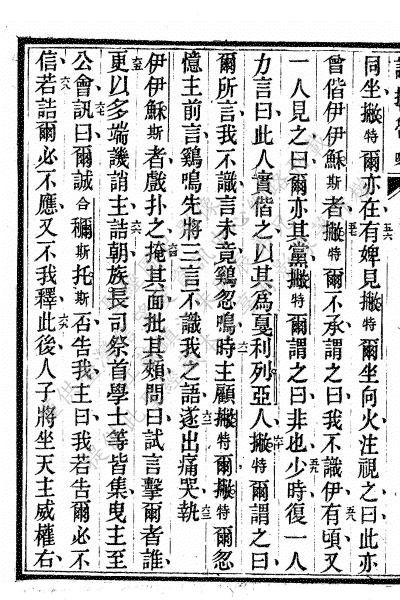 同坐撇特爾亦在有五六婢見撇特爾坐向火注視之曰此亦
曾偕伊伊穌斯者五七撇特爾不承謂之曰我不識伊五八有頃又
一人見之曰爾亦其黨撇特爾謂之曰非也五九少時復一人
力言曰此人實偕之以其為戛利列亞人六十撇特爾謂之曰
爾所言我不識言未竟鷄忽鳴六一時主顧撇特爾撇特爾忽
憶主前言鷄鳴先將三言不識我之語六二遂出痛哭六三執
伊伊穌斯者戲扑之六四掩其面批其頰問曰試言擊爾者誰
六五更以多端譏誚主詰朝族長司祭首學士等皆集曳主至
公會六七訊曰爾誠合穪斯托斯否告我主曰我若告爾必不
信六八若詰爾必不應又不我釋六九此後人子將坐天主威權右